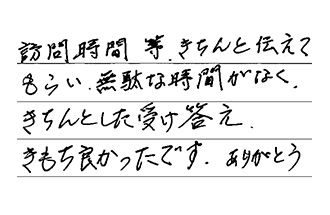 訪問時間 等、きちんと伝えて
もらい、無駄な時間がなく、
きちんとした受け答え、
きもち良かったです。ありがとう